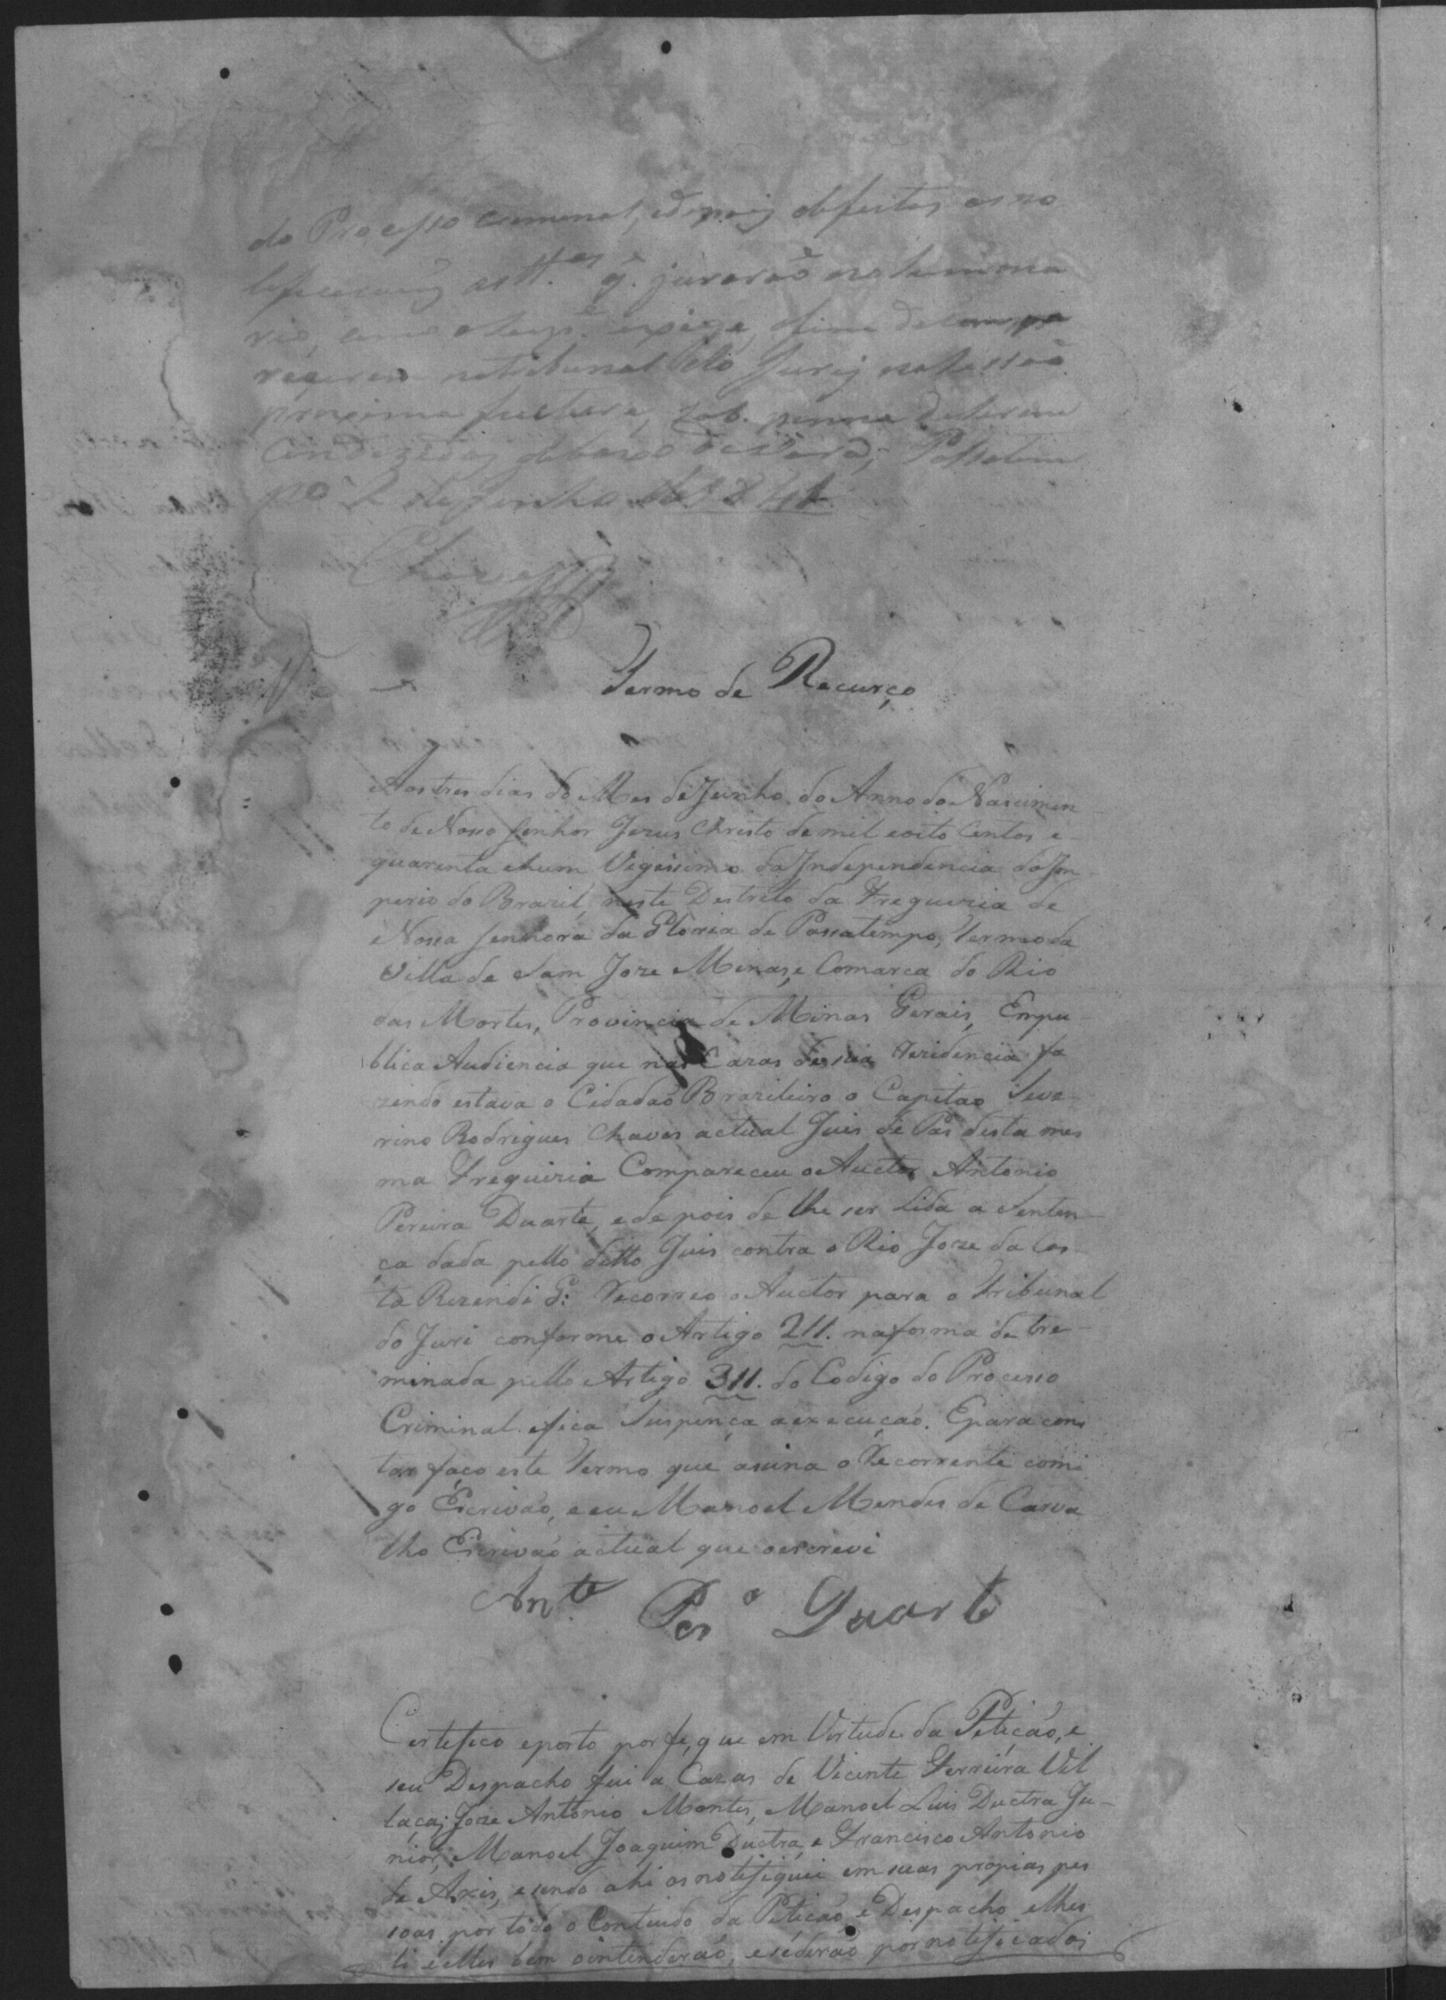 do Processo criminal, depois
as tt.as q. jurarão no
rio, como
recerem no tribunal do Jury na sessão
proxima futura, sob. penna de serem
Conduzidas debaixo de Vara; Passatem
po 2 de Junho de 1841.
Chaves
Termo de Recurço
Aos tres dias do Mes de Junho do Anno do Nascimen
to de Nosso Senhor Jezus Christo de mil eoito Centos e
quarenta ehum Vigessimo da Independencia do Im
perio do Brazil, neste Destrito da Freguezia de
Nossa Senhora da Gloria de Passatempo, Termo da
Villa de Sam Joze Minas, e Comarca do Rio
das Mortes, Provincia de Minas Gerais, Empu-
blica Audiencia que nas Cazas de sua Rezidencia fa
zendo estava o Cidadão Brazileiro o Capitão Seve-
rino Rodrigues Chaves actual Juis de Pas desta mes
ma Freguizia Compareceu o Auctor Antonio
Pereira Duarte, e de pois de lhe ser Lida a Senten-
ça dada pello ditto Juis contra o Rio Joze da Cos-
ta Rezende G: Recorreo o Auctor para o Tribunal
do Juri conforme o Artigo 211. na forma de tre-
minada pello Artigo 311. do Codigo do Processo
Criminal. e fica Suspença a execução. Epara cons
tar faço este Termo que asina o Recorrente comi
go Escrivão, e eu Manoel Mendes de Carva
lho Escrivão actual que oescrevi
Ant.º Per.ª Duarte
Certefico eporto por fe, que em Virtude da Petição, e
seu Despacho fui a Cazas de Vicente Ferreira Vil
laça; Joze Antonio Montes, Manoel Luis Ductra Ju-
nior, Manoel Joaquim Ductra, e Francisco Antonio
de Axis, e sendo ahi os notefiquei em suas propias pes
soas por todo o Contiudo da Petição e Despacho elhes
li e elles bem ointenderão, esederão por notificados